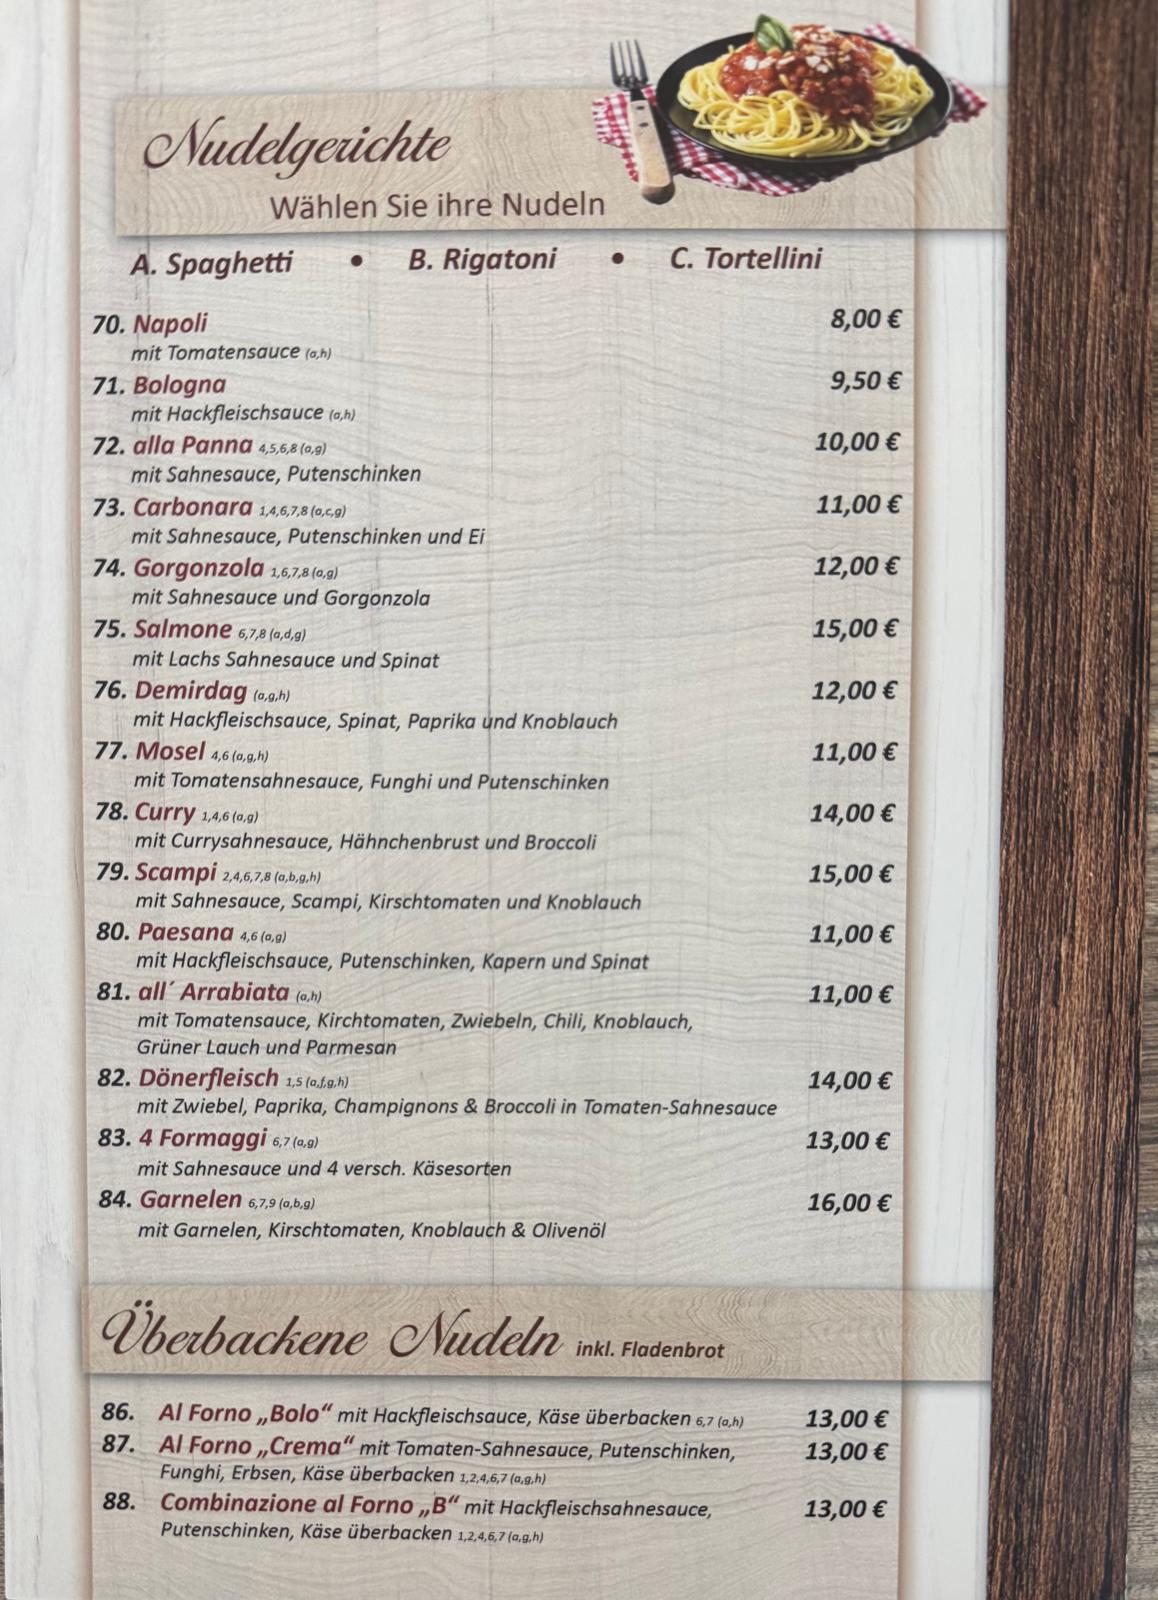 Nudelgerichte
Wählen Sie ihre Nudeln
A. Spaghetti • B. Rigatoni • C. Tortellini
70. Napoli 8,00 €
mit Tomatensauce (a,h)
71. Bologna 9,50 €
mit Hackfleischsauce (a,h)
72. alla Panna 4,5,6,8 (a,g) 10,00 €
mit Sahnesauce, Putenschinken
73. Carbonara 1,4,6,7,8 (a,c,g) 11,00 €
mit Sahnesauce, Putenschinken und Ei
74. Gorgonzola 1,6,7,8 (a,g) 12,00 €
mit Sahnesauce und Gorgonzola
75. Salmone 6,7,8 (a,d,g) 15,00 €
mit Lachs Sahnesauce und Spinat
76. Demirdag (a,g,h) 12,00 €
mit Hackfleischsauce, Spinat, Paprika und Knoblauch
77. Mosel 4,6 (a,g,h) 11,00 €
mit Tomatensahnesauce, Funghi und Putenschinken
78. Curry 1,4,6 (a,g) 14,00 €
mit Currysahnesauce, Hähnchenbrust und Broccoli
79. Scampi 2,4,6,7,8 (a,b,g,h) 15,00 €
mit Sahnesauce, Scampi, Kirschtomaten und Knoblauch
80. Paesana 4,6 (a,g) 11,00 €
mit Hackfleischsauce, Putenschinken, Kapern und Spinat
81. all´ Arrabiata (a,h) 11,00 €
mit Tomatensauce, Kirchtomaten, Zwiebeln, Chili, Knoblauch,
Grüner Lauch und Parmesan
82. Dönerfleisch 1,5 (a,f,g,h) 14,00 €
mit Zwiebel, Paprika, Champignons & Broccoli in Tomaten-Sahnesauce
83. 4 Formaggi 6,7 (a,g) 13,00 €
mit Sahnesauce und 4 versch. Käsesorten
84. Garnelen 6,7,9 (a,b,g) 16,00 €
mit Garnelen, Kirschtomaten, Knoblauch & Olivenöl
Überbackene Nudeln inkl. Fladenbrot
86. Al Forno „Bolo“ mit Hackfleischsauce, Käse überbacken 6,7 (a,h) 13,00 €
87. Al Forno „Crema“ mit Tomaten-Sahnesauce, Putenschinken, 13,00 €
Funghi, Erbsen, Käse überbacken 1,2,4,6,7 (a,g,h)
88. Combinazione al Forno „B“ mit Hackfleischsahnesauce, 13,00 €
Putenschinken, Käse überbacken 1,2,4,6,7 (a,g,h)